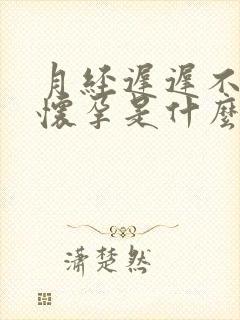 月经遲遲不
懷孕是什麼
瀟楚然